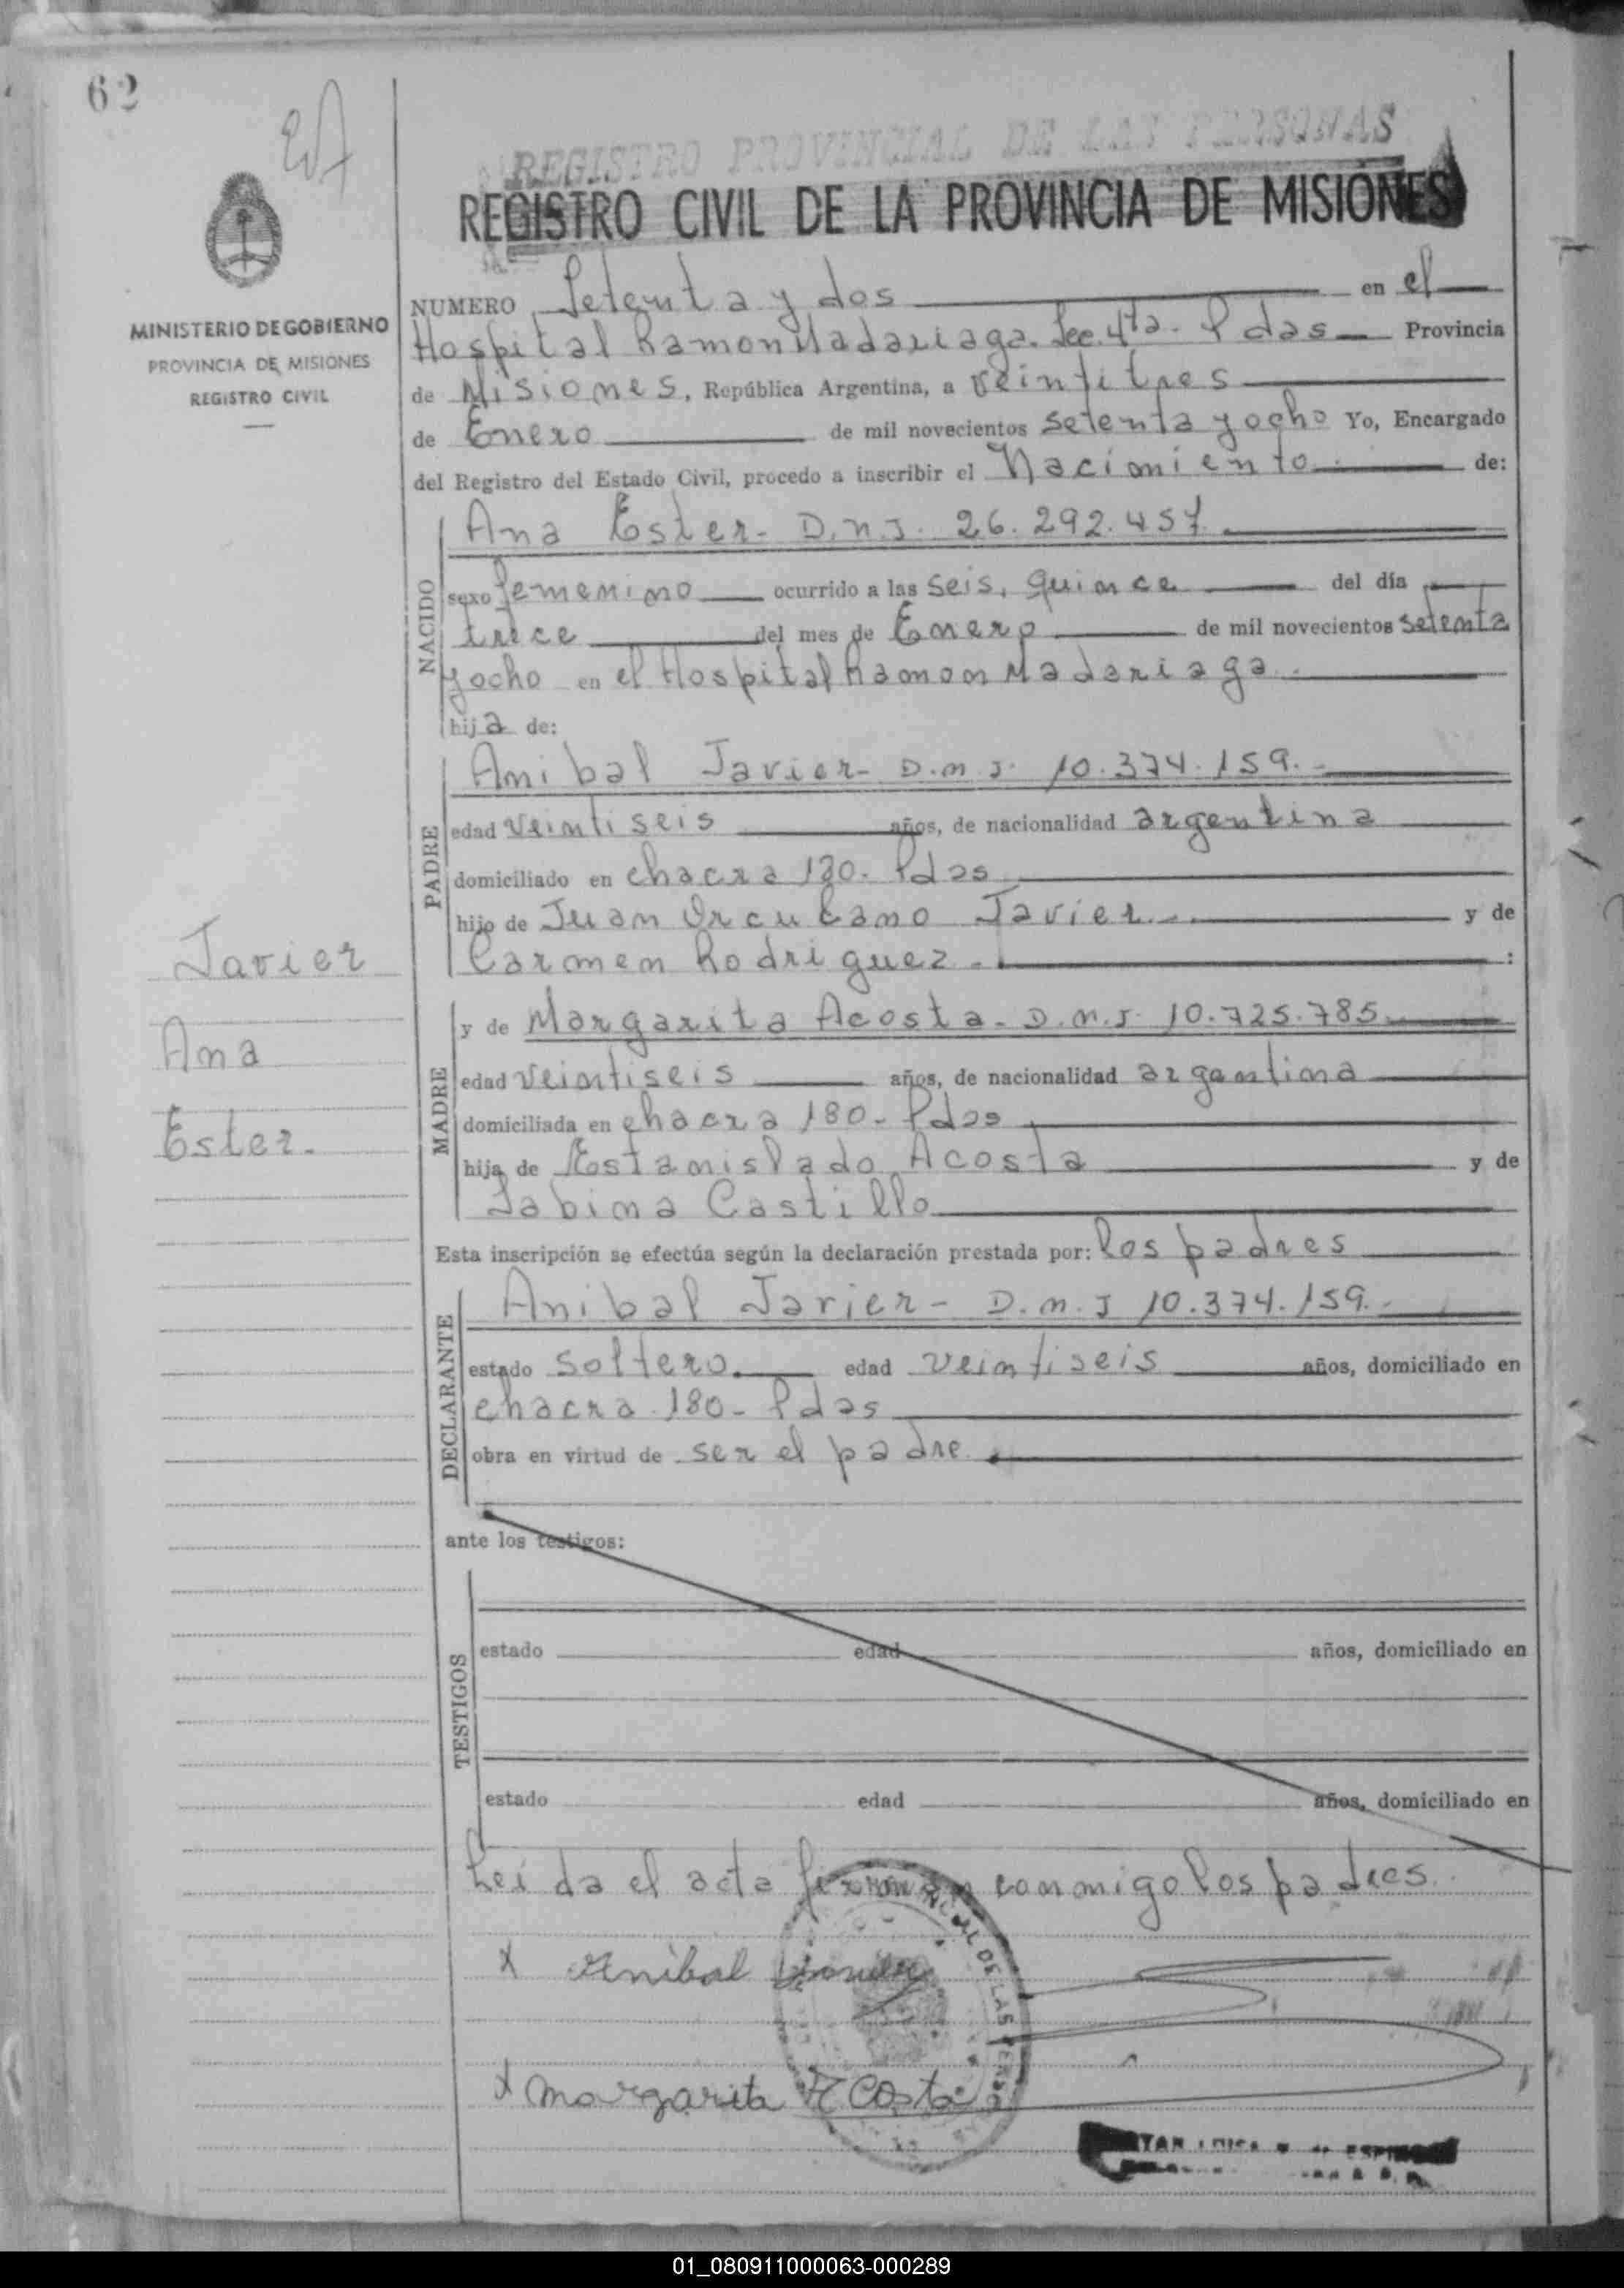 62
REGISTRO PROVINCIAL DE LAS PERSONAS
REGISTRO CIVIL DE LA PROVINCIA DE MISIONES
MINISTERIO DE GOBIERNO
PROVINCIA DE MISIONES
REGISTRO CIVIL
NUMERO Setenta y dos en el
Hospital Ramon Madariaga. Sec. 4ta. Pdas Provincia
de Misiones, República Argentina, a veintitres
de Enero de mil novecientos setenta y ocho Yo, Encargado
del Registro del Estado Civil, procedo a inscribir el Nacimiento de:
NACIDO
Ana Ester - D.N.I. 26.292.457.
sexo femenino ocurrido a las seis, quince del día
trece del mes de Enero de mil novecientos setenta
y ocho en el Hospital Ramon Madariaga.
hija de:
PADRE
Anibal Javier - D.N.I. 10.374.159.
edad veintiseis años, de nacionalidad argentina
domiciliado en chacra 180. Pdas
hijo de Juan Javier y de
Carmen Rodriguez :
Javier
Ana
Ester.
MADRE
y de Margarita Acosta - D.N.I. 10.725.785.
edad veintiseis años, de nacionalidad argentina
domiciliada en chacra 180 - Pdas
hija de Estanislado Acosta y de
Sabina Castillo
Esta inscripción se efectúa según la declaración prestada por: los padres
DECLARANTE
Anibal Javier - D.N.I 10.374.159.
estado soltero. edad veintiseis años, domiciliado en
chacra 180 - Pdas
obra en virtud de ser el padre.
ante los testigos:
TESTIGOS
estado edad años, domiciliado en
estado edad años, domiciliado en
Leida el acta firman conmigo los padres.
x Anibal Javier
x Margarita Acosta
DE LAS
01_080911000063-000289